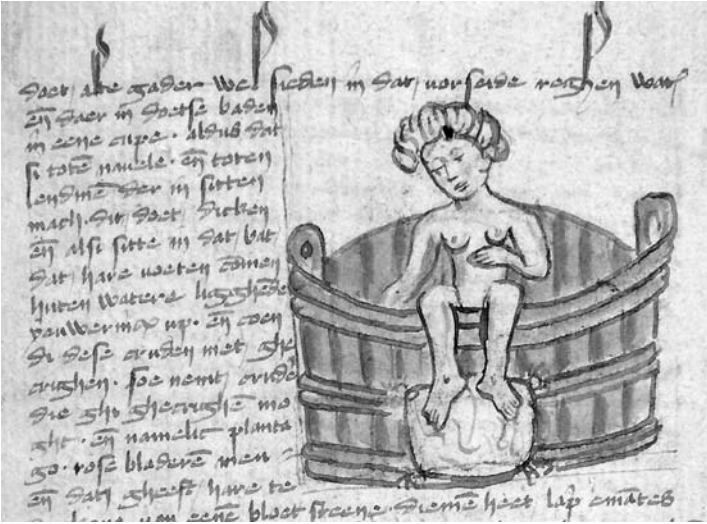 doet alte gader wel sieden in dat vorseide reghen wat͛
en̄ daer in doetse baden
in eene cupe · aldus dat
si totē navele · en̄ toten
lendinē der in sitten
mach · dit doet dicken
en̄ alsi sitte in dat bat
dat hare voeten comen
huten watere ligghēde
up · en̄ coen
di dese cruden niet ghe
crighen · soe nemt crude
die ghi ghecrighē mo
ght · en̄ namelic planta
go · rose bladerē
en̄ dat gheeft hare te
van eenē bloet steene · diemē heet lap̄ ematēs